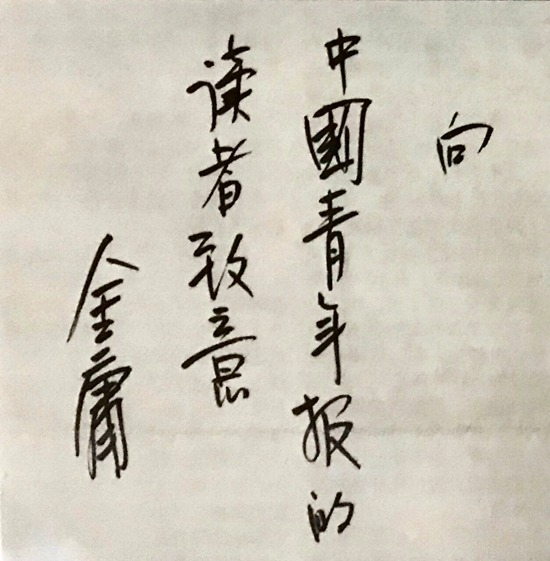 向
中國青年报的
读者致意
金庸